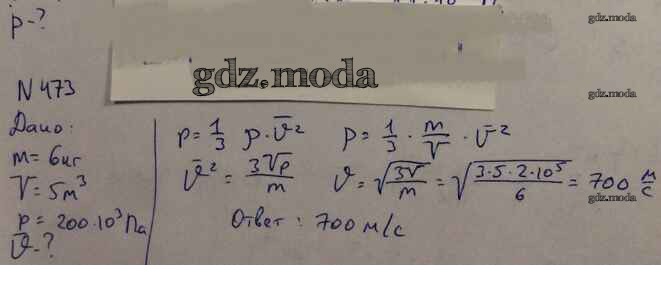 p-?
gdz.moda
gdz.moda
N 473
gdz.moda
Дано:
m= 6 кг
V= 5 м³
p= 200·10³ Па
v̄-?
p= 1/3 ρ·v̄² p= 1/3 · m/V · v̄²
v̄² = 3Vp/m v̄ = √(3V/m) = √(3·5·2·10⁵/6) = 700 м/с
gdz.moda
Ответ: 700 м/с